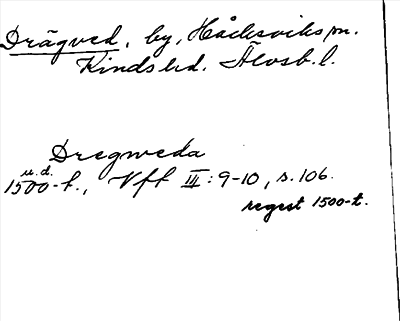 Drägved, by, Håcksviks sn.
Kinds hd. Älvsb. l.
Dregweda
u.d.
1500-t., Vff III: 9-10, s. 106.
regest 1500-t.